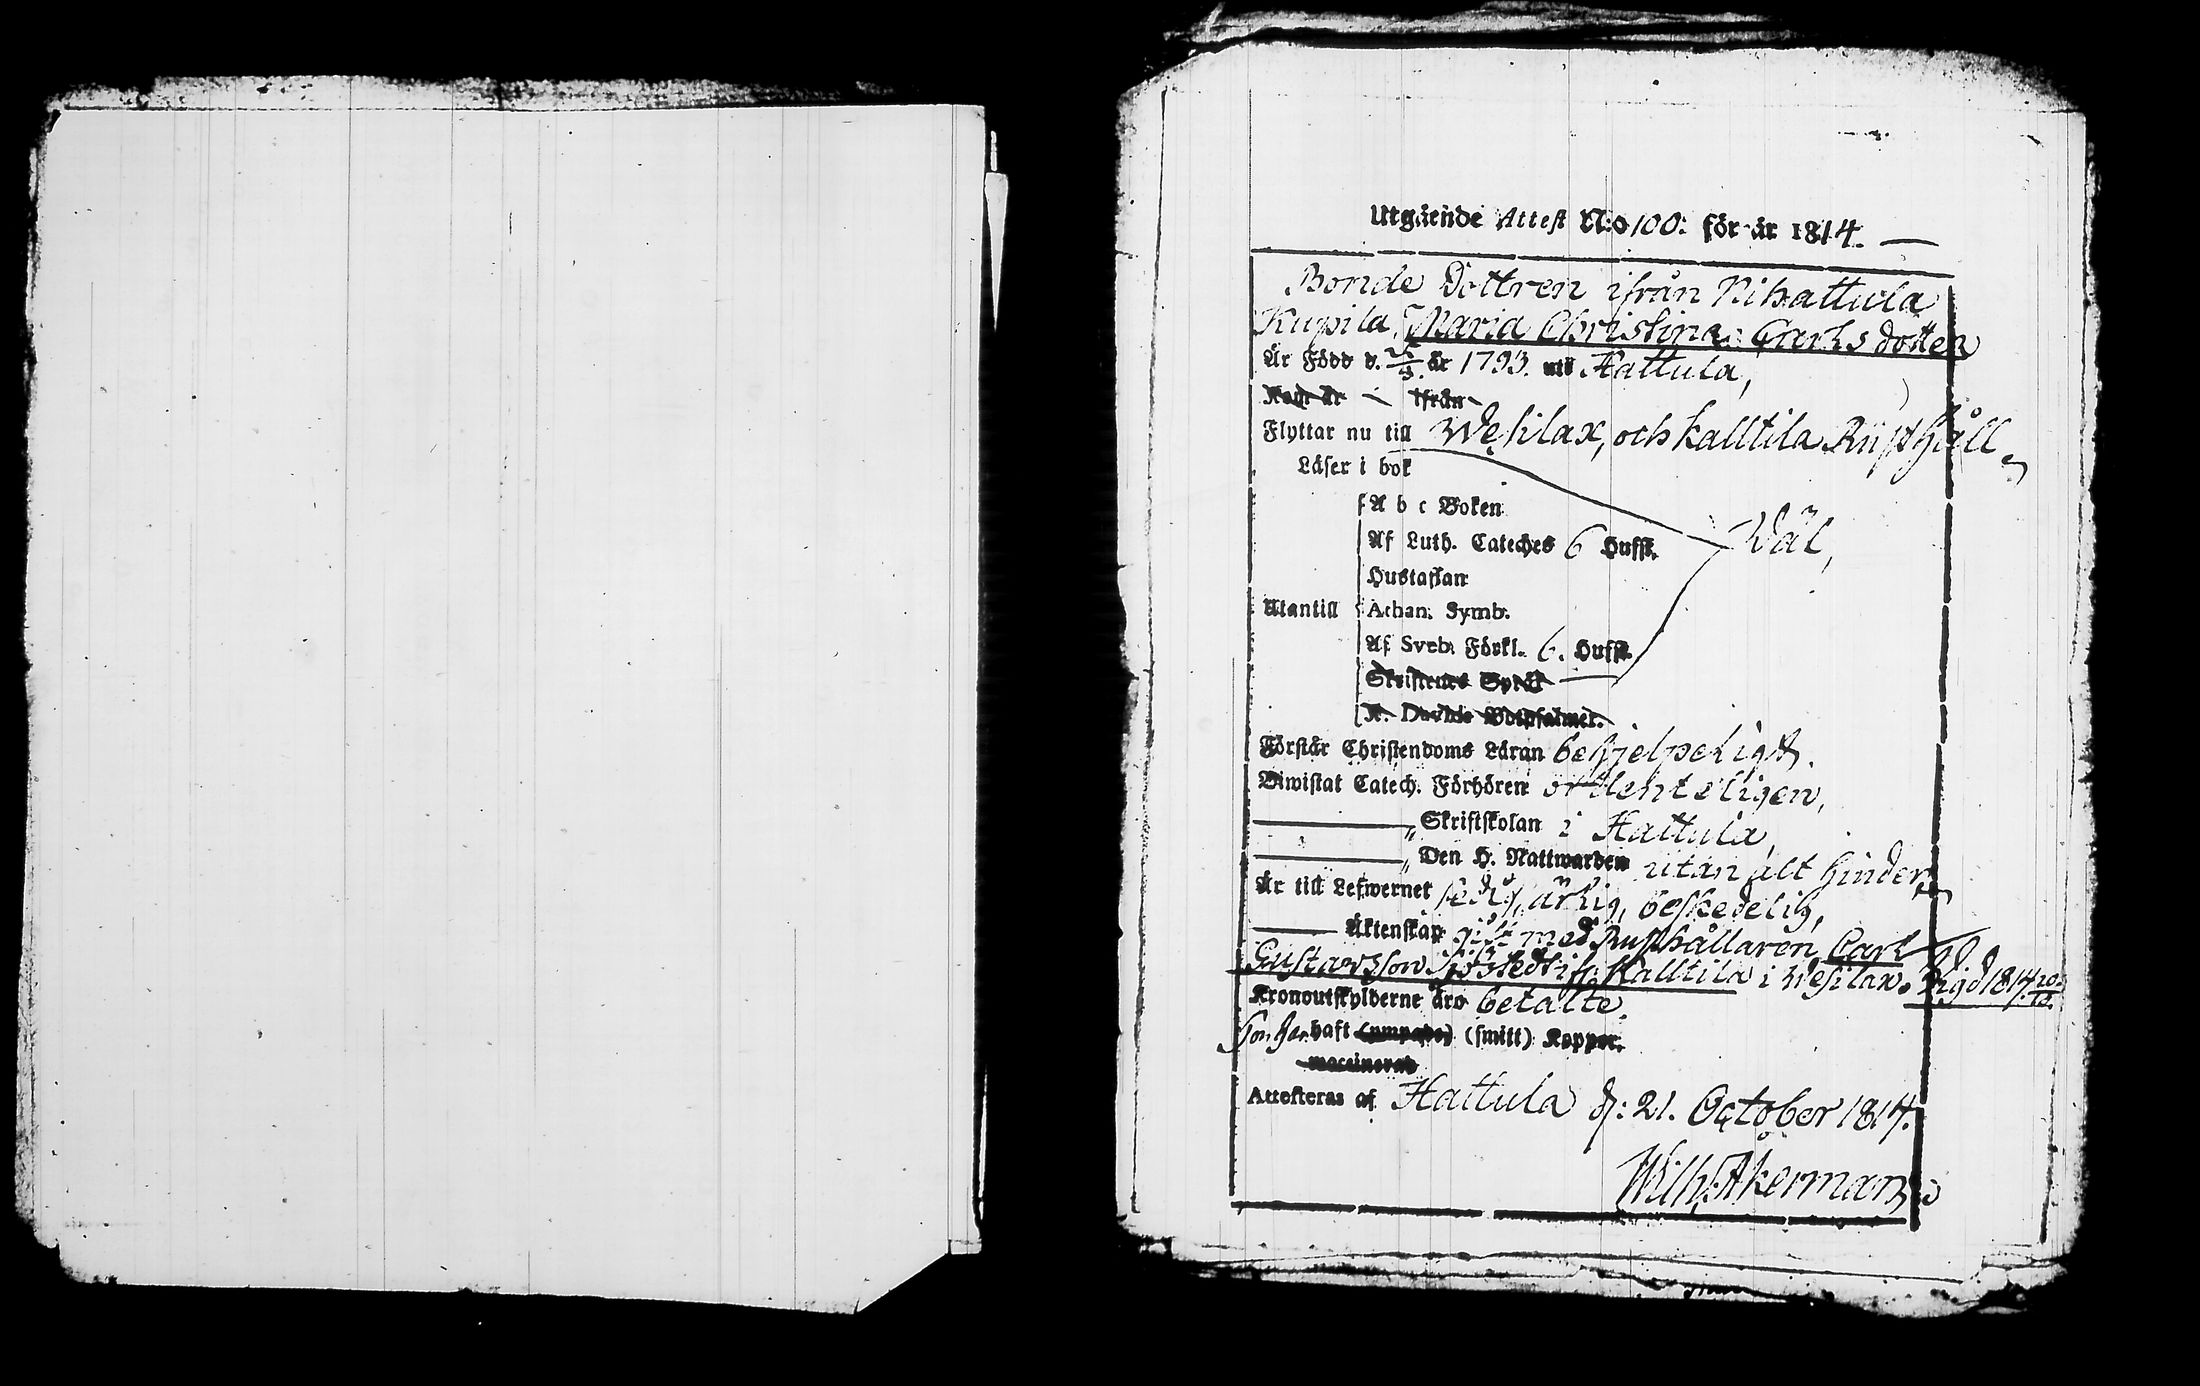 Utgående Attest N:o 100: för år 1814.
Bonde Dottren ifrån Nihattula
Kupila, Maria Christina Carlsdotter
Är Född d. år 1793. uti Hattula,
Kom år ifrån
Flyttar nu till Wesilax, och Kalltila Rusthåll
Läser i bok
A b c Boken
Af Luth. Cateches 6 Hufst. Wäl,
Hustaflan
Utantill Athan. Symb.
Af Sveb. Förkl. 6. Hufst.
Skriftenes Språk
K. Davids Botpsalmer.
Förstår Christendoms Läran behjelpeligt.
Biwistat Catech. Förhören ordenteligen,
Skriftskolan i Hattula,
Den H. Nattwarden utan alt hinder
Är till Lefwernet ärlig, beskedelig,
Äktenskap gift med Rusthållaren Carl
Gustavsson Sjöstedt ifr. Kalltila i Wesilax. Vigd 1814 20/12.
Kronoutskylderne äro betalte.
haft (ympade) (smitt) Koppor.
vaccinerad
Attesteras af Hattula d: 21. October 1814.
Wilh. Åkerman